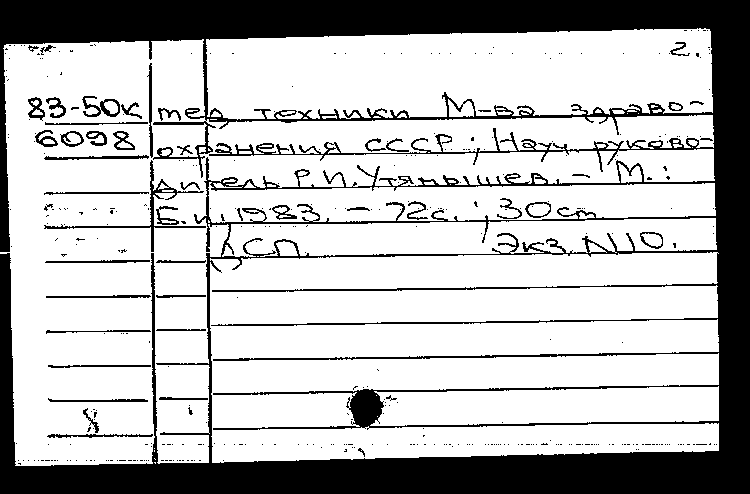 2.
83-50к мед техники М-ва здраво-
6098 охранения СССР; Науч. руково-
дитель Р.И.Утямышев. - М.:
Б.и., 1983. - 72с.; 30см.
ДСП. Экз. N10.
8